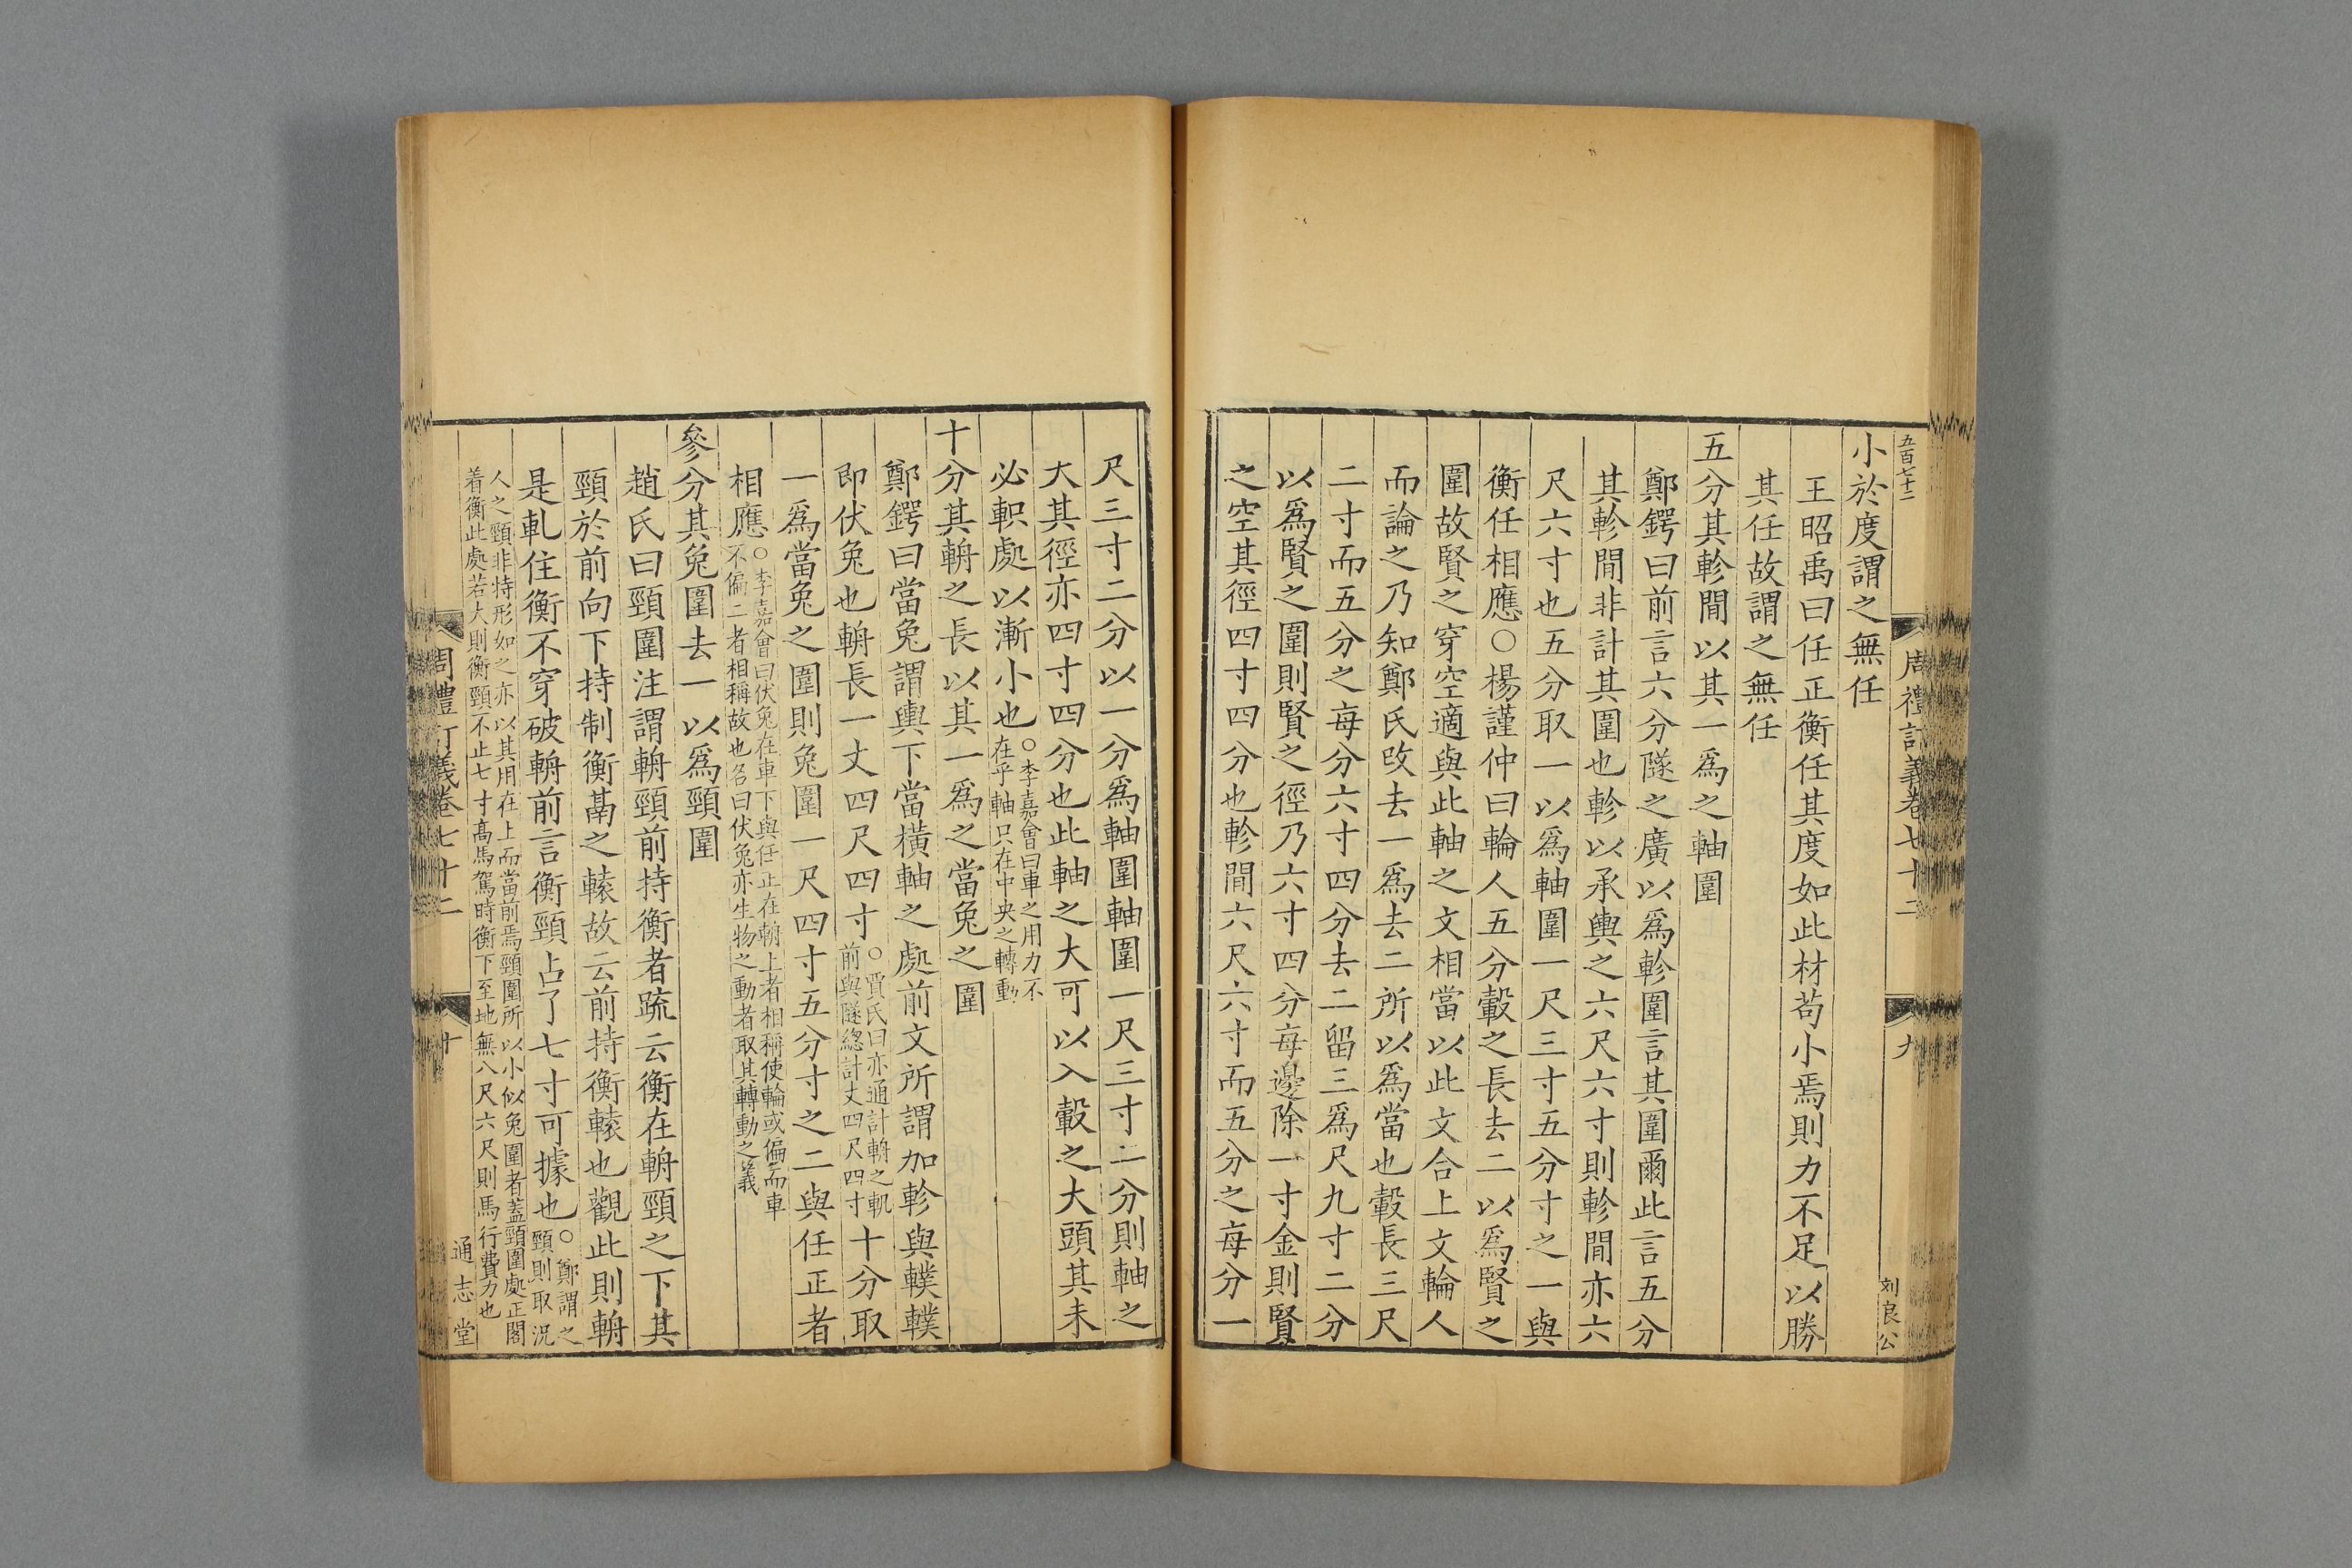 五百七十二
周禮訂義卷七十二
九
刘良公
小於度謂之無任
王昭禹曰任正衡任其度如此材苟小焉則力不足以勝
其任故謂之無任
五分其軫間以其一爲之軸圍
鄭鍔曰前言六分隧之廣以爲軫圍言其圍爾此言五分
其軫間非計其圍也軫以承輿之六尺六寸則軫間亦六
尺六寸也五分取一以爲軸圍一尺三寸五分寸之一與
衡任相應○楊謹仲曰輪人五分轂之長去二以爲賢之
圍故賢之穿空適與此軸之文相當以此文合上文輪人
而論之乃知鄭氏改去一爲去二所以爲當也轂長三尺
二寸而五分之每分六寸四分去二留三爲尺九寸二分
以爲賢之圍則賢之徑乃六寸四分每邊除一寸金則賢
之空其徑四寸四分也軫間六尺六寸而五分之每分一
尺三寸二分以一分爲軸圍軸圍一尺三寸二分則軸之
大其徑亦四寸四分也此軸之大可以入轂之大頭其末
必軹處以漸小也○李嘉會曰車之用力不
在乎軸只在中央之轉動
十分其輈之長以其一爲之當兔之圍
鄭鍔曰當兔謂輿下當橫軸之處前文所謂加軫與轐轐
即伏兔也輈長一丈四尺四寸○賈氏曰亦通計輈之軓
前與隧總計丈四尺四寸十分取
一爲當兔之圍則兔圍一尺四寸五分寸之二與任正者
相應○李嘉會曰伏兔在車下與任正在輈上者相稱使輪或偏而車
不偏二者相稱故也名曰伏兔亦生物之動者取其轉動之義
參分其兔圍去一以爲頸圍
趙氏曰頸圍注謂輈頸前持衡者疏云衡在輈頸之下其
頸於前向下持制衡鬲之轅故云前持衡轅也觀此則輈
是軋住衡不穿破輈前言衡頸占了七寸可據也○鄭謂之
頸則取況
人之頸非特形如之亦以其用在上而當前焉頸圍所以小似兔圍者蓋頸圍處正閣
着衡此處若大則衡頸不止七寸高馬駕時衡下至地無八尺六尺則馬行費力也
周禮訂義卷七十二
十
通志堂